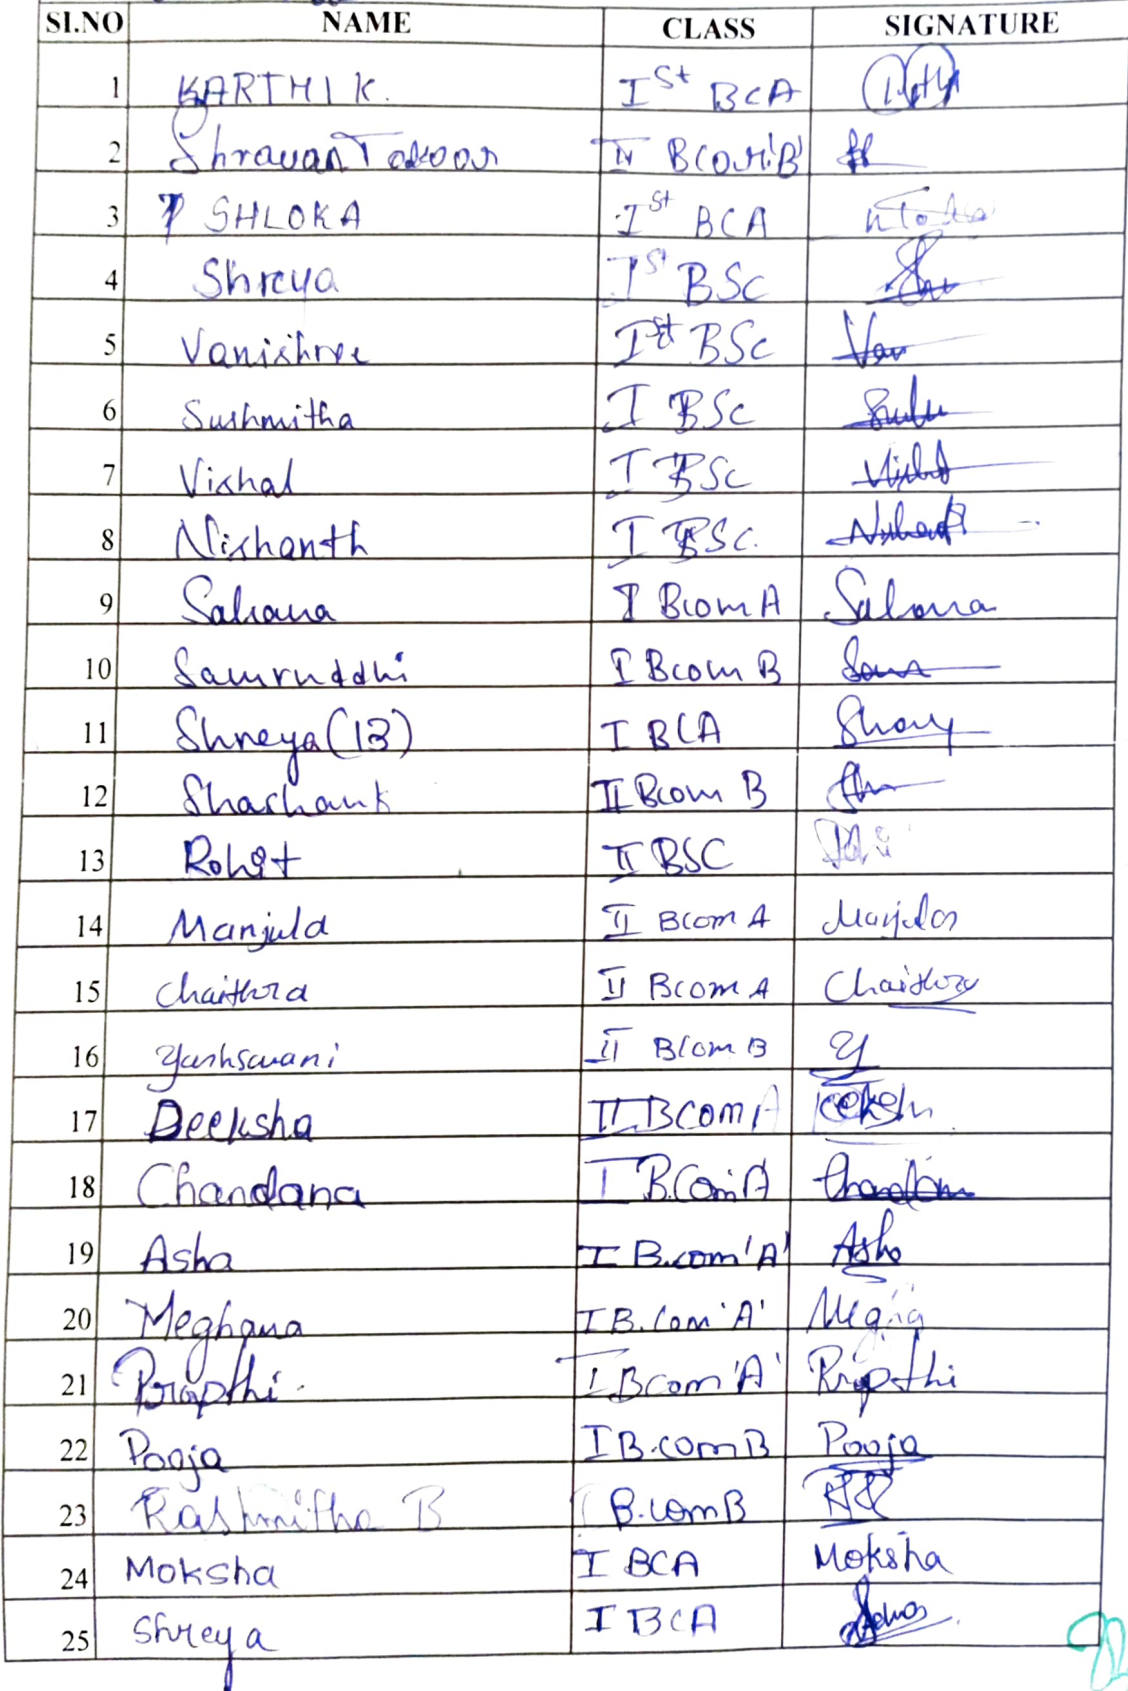 SI.NO NAME CLASS SIGNATURE
1 KARTHIK. I St BCA
2 Shravan Bcom 'B'
3 SHLOKA I St BCA
4 Shreya I St BSc
5 Vanishree I st BSc Van
6 Sushmitha I BSc
7 Vishal I BSc Vishal
8 Nishanth I BSc.
9 Sahana I Bcom A Sahana
10 Samruddhi I Bcom B
11 Shreya (13) I BCA
12 Shashank II Bcom B
13 Rohit II BSC
14 Manjula II Bcom A
15 Chaithra II Bcom A Chaithra
16 Yashswani II Bcom B Y
17 Deeksha II BCom A
18 Chandana I B.Com A
19 Asha I B.com 'A' Asha
20 Meghana I B.Com 'A'
21 Prapthi. I Bcom 'A' Prapthi
22 Pooja I B.com B Pooja
23 Rashmitha B I B.com B
24 Moksha I BCA Moksha
25 Shreya I BCA